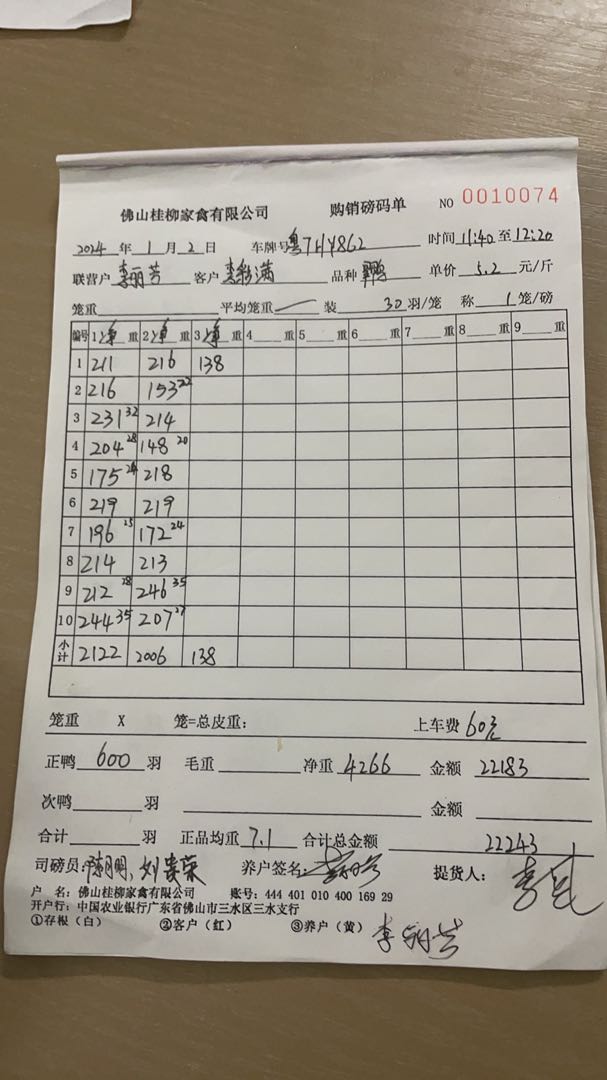 佛山桂柳家禽有限公司 购销磅码单 NO 0010074
2024 年 1 月 2 日 车牌号 粤THY862 时间 11:40 至 12:20
联营户 李丽芳 客户 满 品种 单价 5.2 元/斤
笼重 平均笼重 装 30 羽/笼 称 1 笼/磅
编号 1 净 重 2 净 重 3 净 重 4 重 5 重 6 重 7 重 8 重 9 重
1 211 216 138
2 216 153 22
3 231 32 214
4 204 28 148 20
5 175 24 218
6 219 219
7 196 25 172 24
8 214 213
9 212 28 246 35
10 244 35 207 27
小计 2122 2006 138
笼重 X 笼=总皮重: 上车费 60元
正鸭 600 羽 毛重 净重 4266 金额 22183
次鸭 羽 金额
合计 羽 正品均重 7.1 合计总金额 22243
司磅员: 陈明明、刘荣 养户签名: 提货人: 李
户 名: 佛山桂柳家禽有限公司 账号: 444 401 010 400 169 29
开户行: 中国农业银行广东省佛山市三水区三水支行
①存根（白） ②客户（红） ③养户（黄） 李丽芳